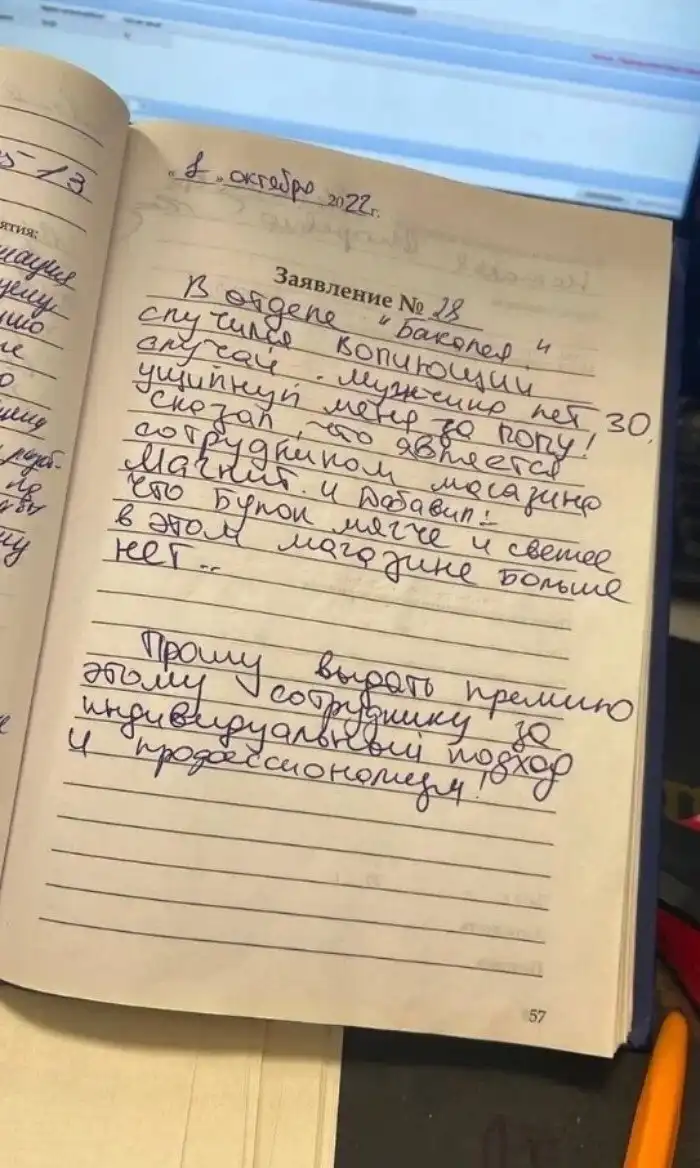 5-13
ятия:
„ 8 " октября 2022г.
Заявление № 28
В отделе "Бакалея"
случился вопиющий
случай. Мужчина лет 30,
ущипнул меня за попу!
сказал, что является
сотрудником магазина
Магнит. И добавил:-
что булок мягче и свежее
в этом магазине больше
нет...
Прошу выдать премию
этому сотруднику за
индивидуальный подход
и профессионализм!
57